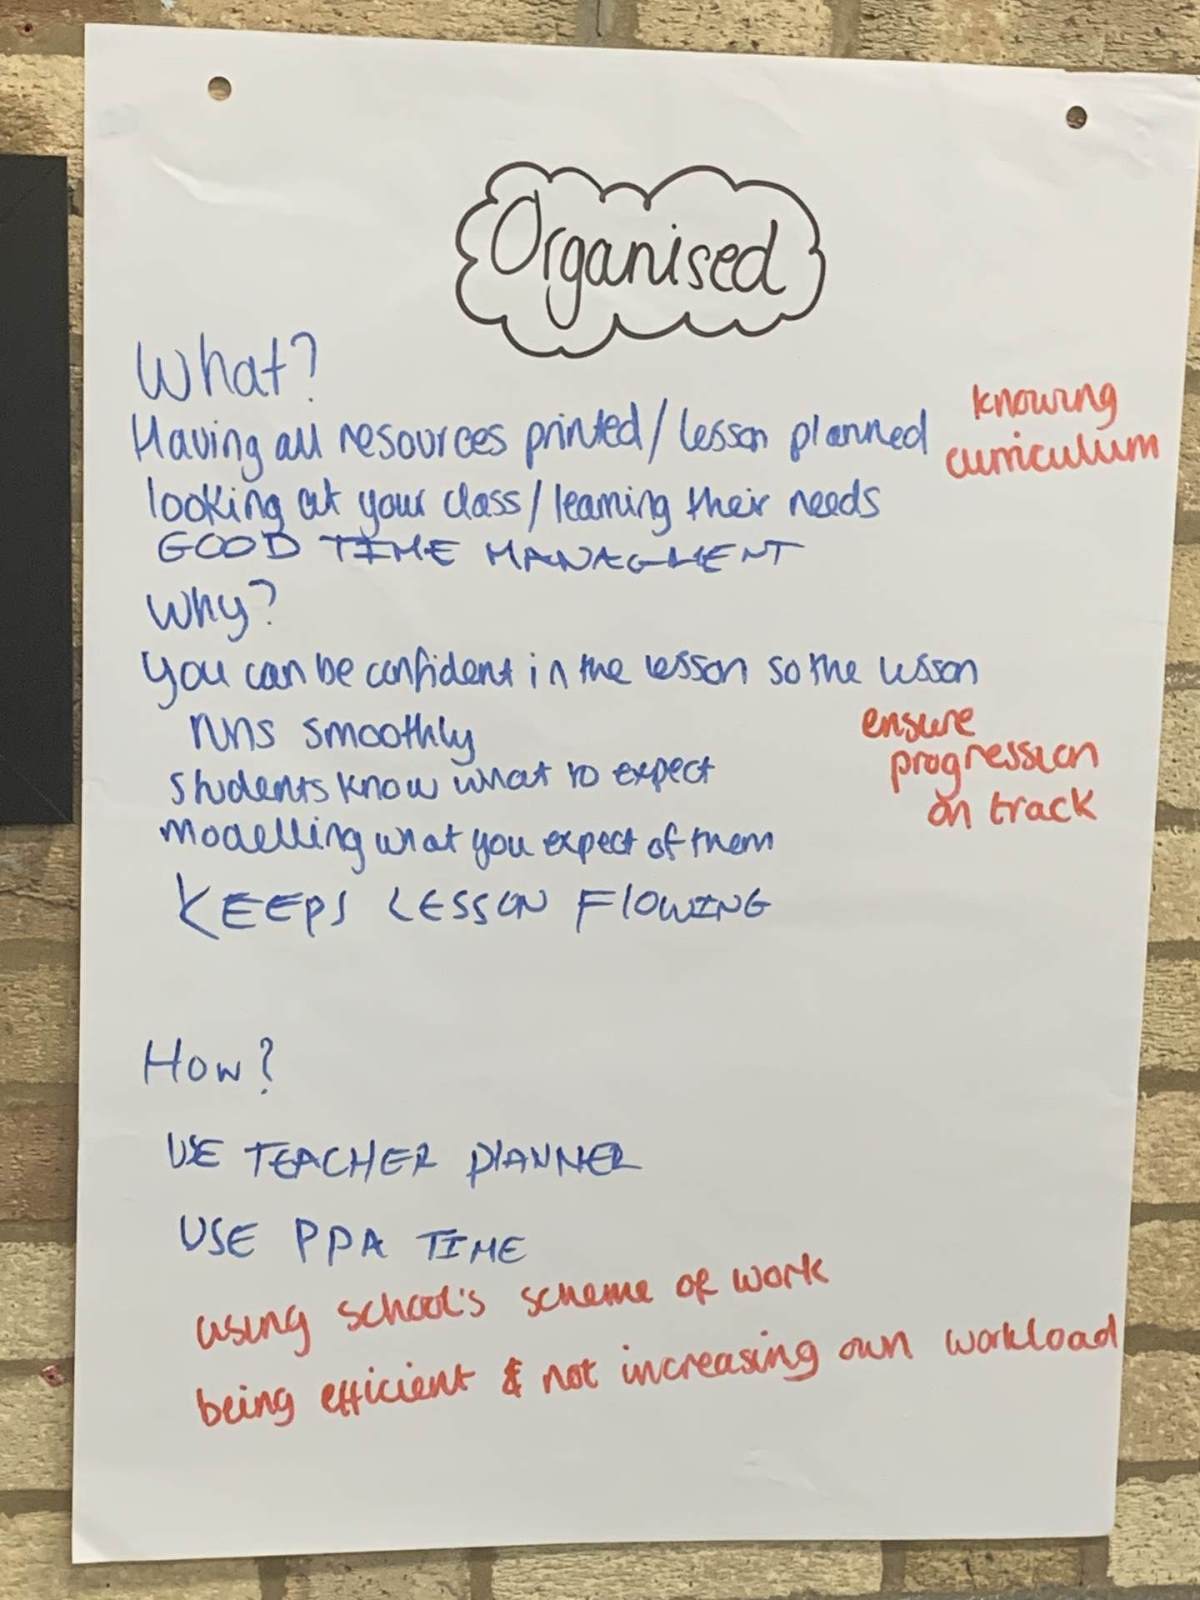 Organised
What?
Having all resources printed/lesson planned
knowing
curriculum
looking at your class/learning their needs
GOOD TIME MANAGMENT
Why?
you can be confident in the lesson so the lesson
runs smoothly
students know what to expect
modelling what you expect of them
KEEPS LESSON FLOWING
ensure
progression
on track
How?
USE TEACHER PLANNER
USE PPA TIME
using school's scheme of work
being efficient & not increasing own workload